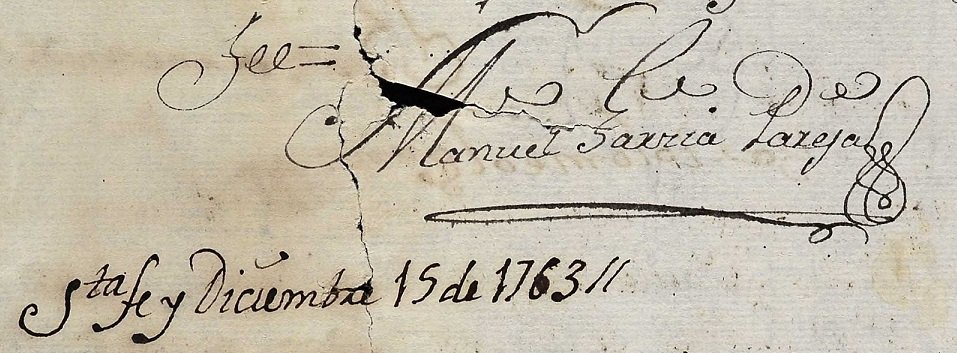 fee =
Manuel Garzia Pareja
Sta fe y Diciembre 15 de 1763 //